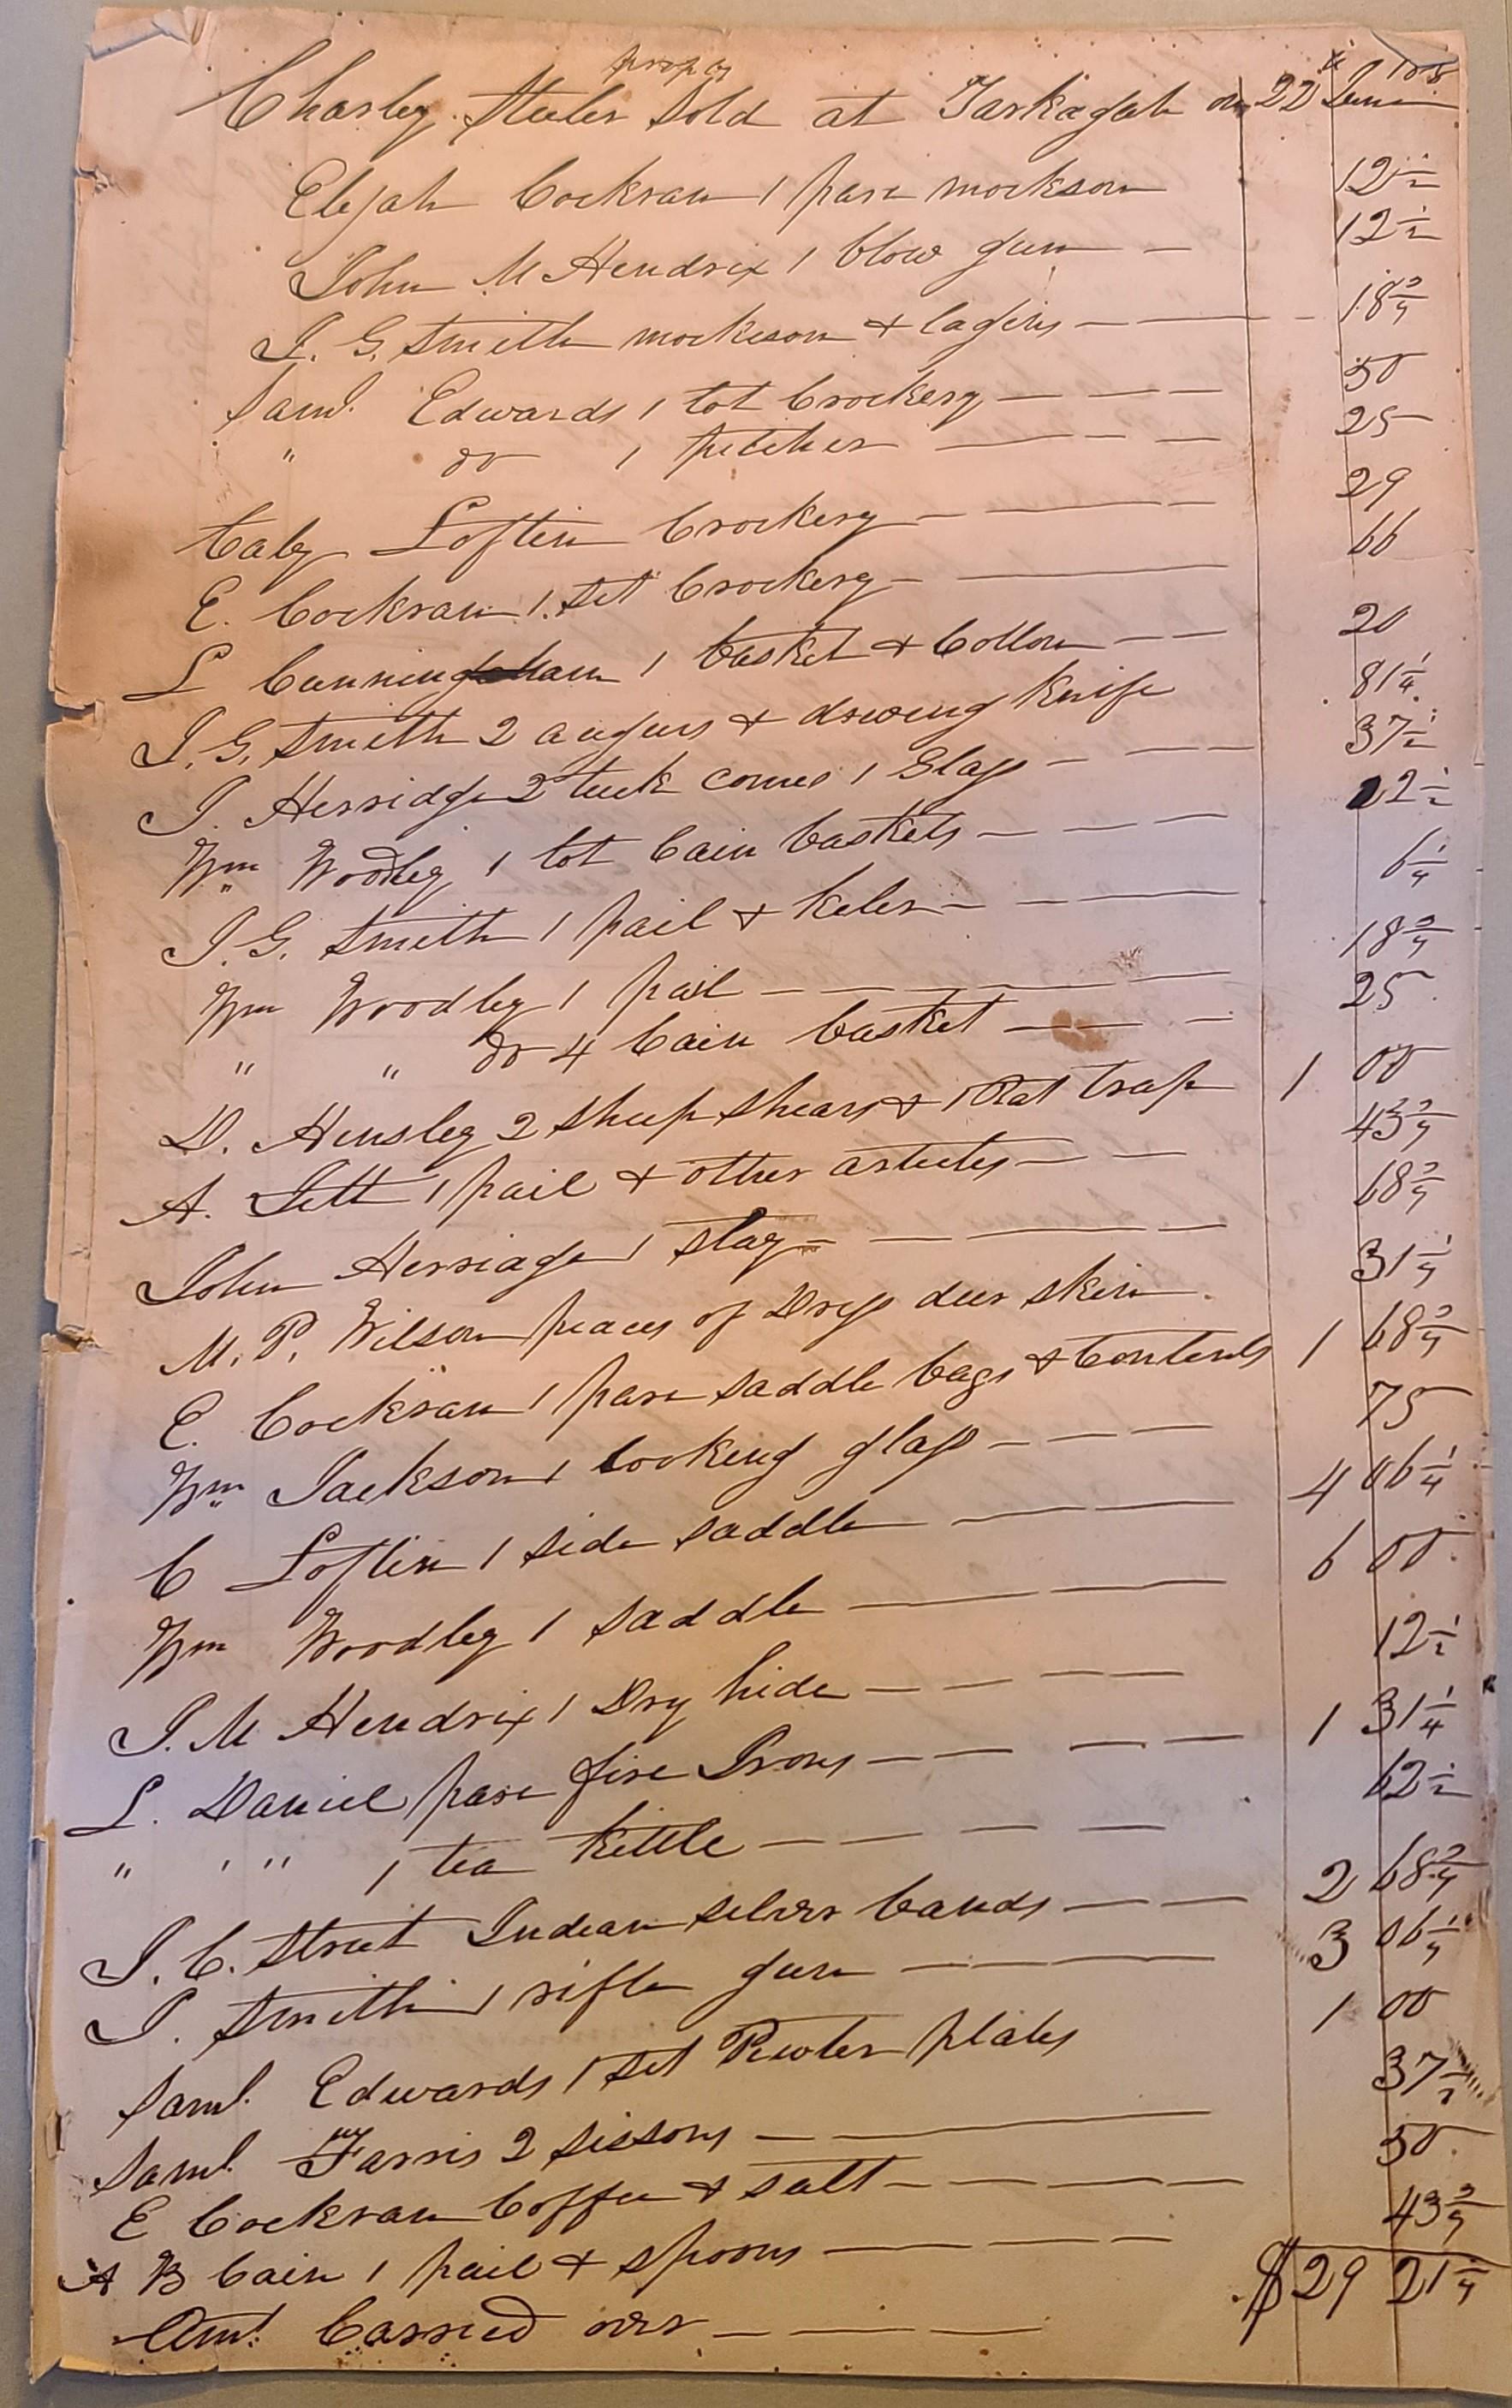 propy
Charley Steeler Sold at Taskagah on 22d June 1838
Elejah Cockram 1 pare mockson 12 1/2
John M Hendrix 1 blow gun 12 1/2
J. G. Smith mockeson & lagins 18 3/4
Saml. Edwards 1 lot Crockery 50
" do 1 pitcher 25
Caby Loftin Crockery 29
E. Cockram 1 Set Crockery 66
L Cunningham 1 basket & Cotton 20
J. G. Smith 2 augurs & drawing knife 81 1/4
J. Herridge 2 tuck comes 1 Slay 37 1/2
Wm Woodley 1 lot Cain baskets 12 1/2
J. G. Smith 1 pail & keler 6 1/4
Wm Woodley 1 pail 18 3/4
" " do 4 Cain basket 25
D. Hensley 2 Sheep Shears & 1 Rat trap 1 00
A. Lett 1 pail & other articles 43 3/4
John Herriage 1 Slay 68 3/4
M. P. Wilson peaces of Drest deer skin 31 1/4
E. Cockram 1 pare saddle bags & Contents 1 68 3/4
Wm Jackson 1 looking glass 75
C Loftin 1 side saddle 4 06 1/4
Wm Woodley 1 saddle 6 00
J. M Hendrix 1 Dry hide 12 1/2
L. Daniel pare fire Irons 1 31 1/4
" " " 1 tea kettle 62 1/2
J. C. Street Indian silver bands 2 68 3/4
J. Smith 1 rifle gun 3 06 1/4
Saml. Edwards 1 Set Pewter plates 1 00
Saml. Farris 2 sissors 37 1/2
E Cockram Coffee & salt 50
A B Cain 1 pail & spoons 43 3/4
Amt. Carried over $29 21 1/4